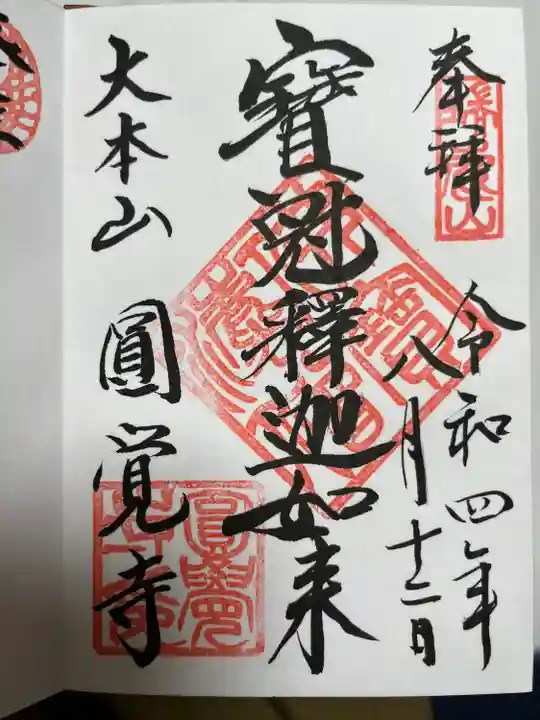 奉拝
令和四年
八月十二日
寳冠釋迦如来
大本山 圓覚寺